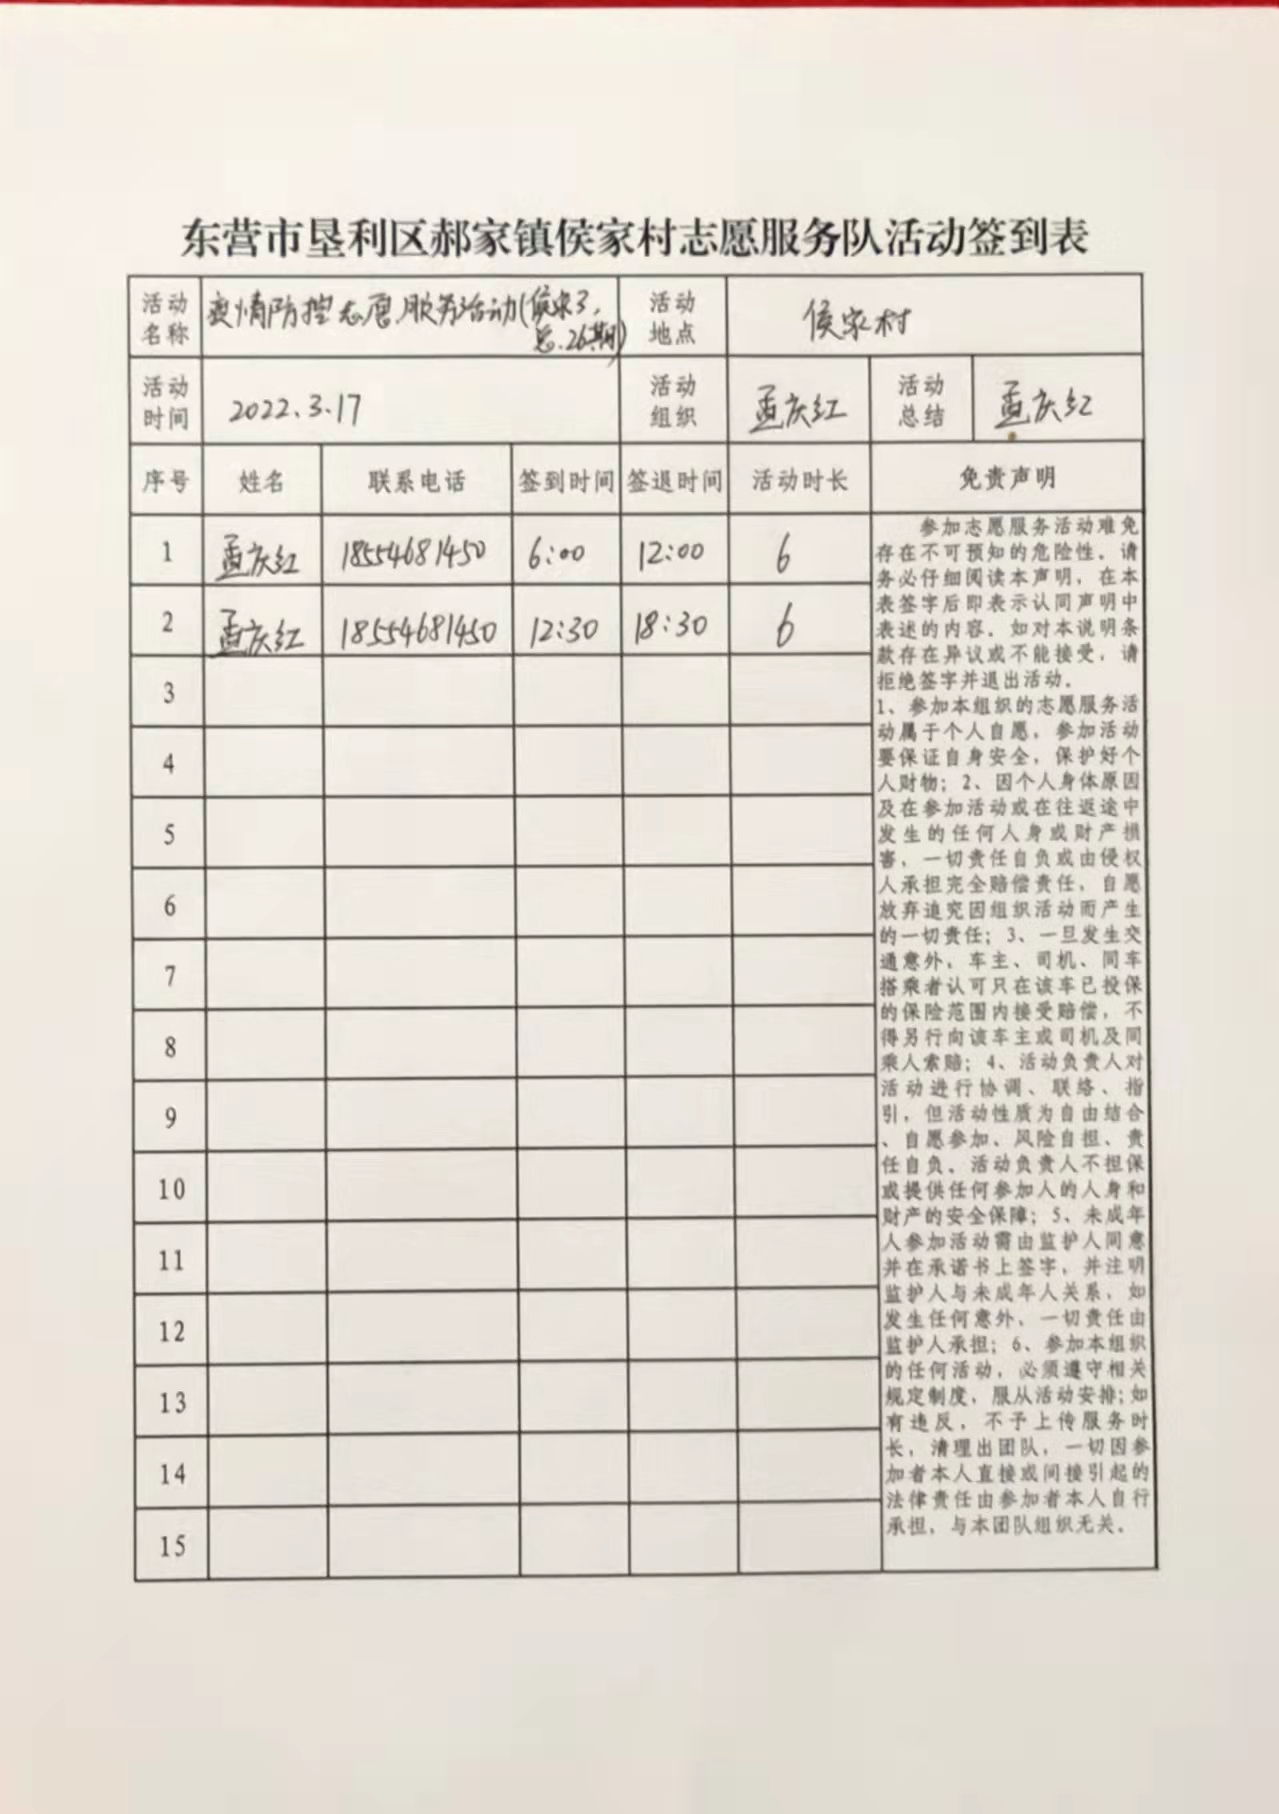 东营市垦利区郝家镇侯家村志愿服务队活动签到表
活动名称 疫情防控志愿服务活动(侯家3,总.26期) 活动地点 侯家村
活动时间 2022.3.17 活动组织 孟庆红 活动总结 孟庆红
序号 姓名 联系电话 签到时间 签退时间 活动时长 免责声明
1 孟庆红 18554681450 6:00 12:00 6
2 孟庆红 18554681450 12:30 18:30 6
3
4
5
6
7
8
9
10
11
12
13
14
15
参加志愿服务活动难免
存在不可预知的危险性，请
务必仔细阅读本声明，在本
表签字后即表示认同声明中
表述的内容，如对本说明条
款存在异议或不能接受，请
拒绝签字并退出活动。
1、参加本组织的志愿服务活
动属于个人自愿，参加活动
要保证自身安全，保护好个
人财物；2、因个人身体原因
及在参加活动或在往返途中
发生的任何人身或财产损
害，一切责任自负或由侵权
人承担完全赔偿责任，自愿
放弃追究因组织活动而产生
的一切责任；3、一旦发生交
通意外，车主、司机、同车
搭乘者认可只在该车已投保
的保险范围内接受赔偿，不
得另行向该车主或司机及同
乘人索赔；4、活动负责人对
活动进行协调、联络、指
引，但活动性质为自由结合
、自愿参加、风险自担、责
任自负。活动负责人不担保
或提供任何参加人的人身和
财产的安全保障；5、未成年
人参加活动需由监护人同意
并在承诺书上签字，并注明
监护人与未成年人关系，如
发生任何意外，一切责任由
监护人承担；6、参加本组织
的任何活动，必须遵守相关
规定制度，服从活动安排;如
有违反，不予上传服务时
长，清理出团队，一切因参
加者本人直接或间接引起的
法律责任由参加者本人自行
承担，与本团队组织无关。